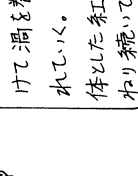 けて渦を巻
れていく。
体とした紅
ねり続いて